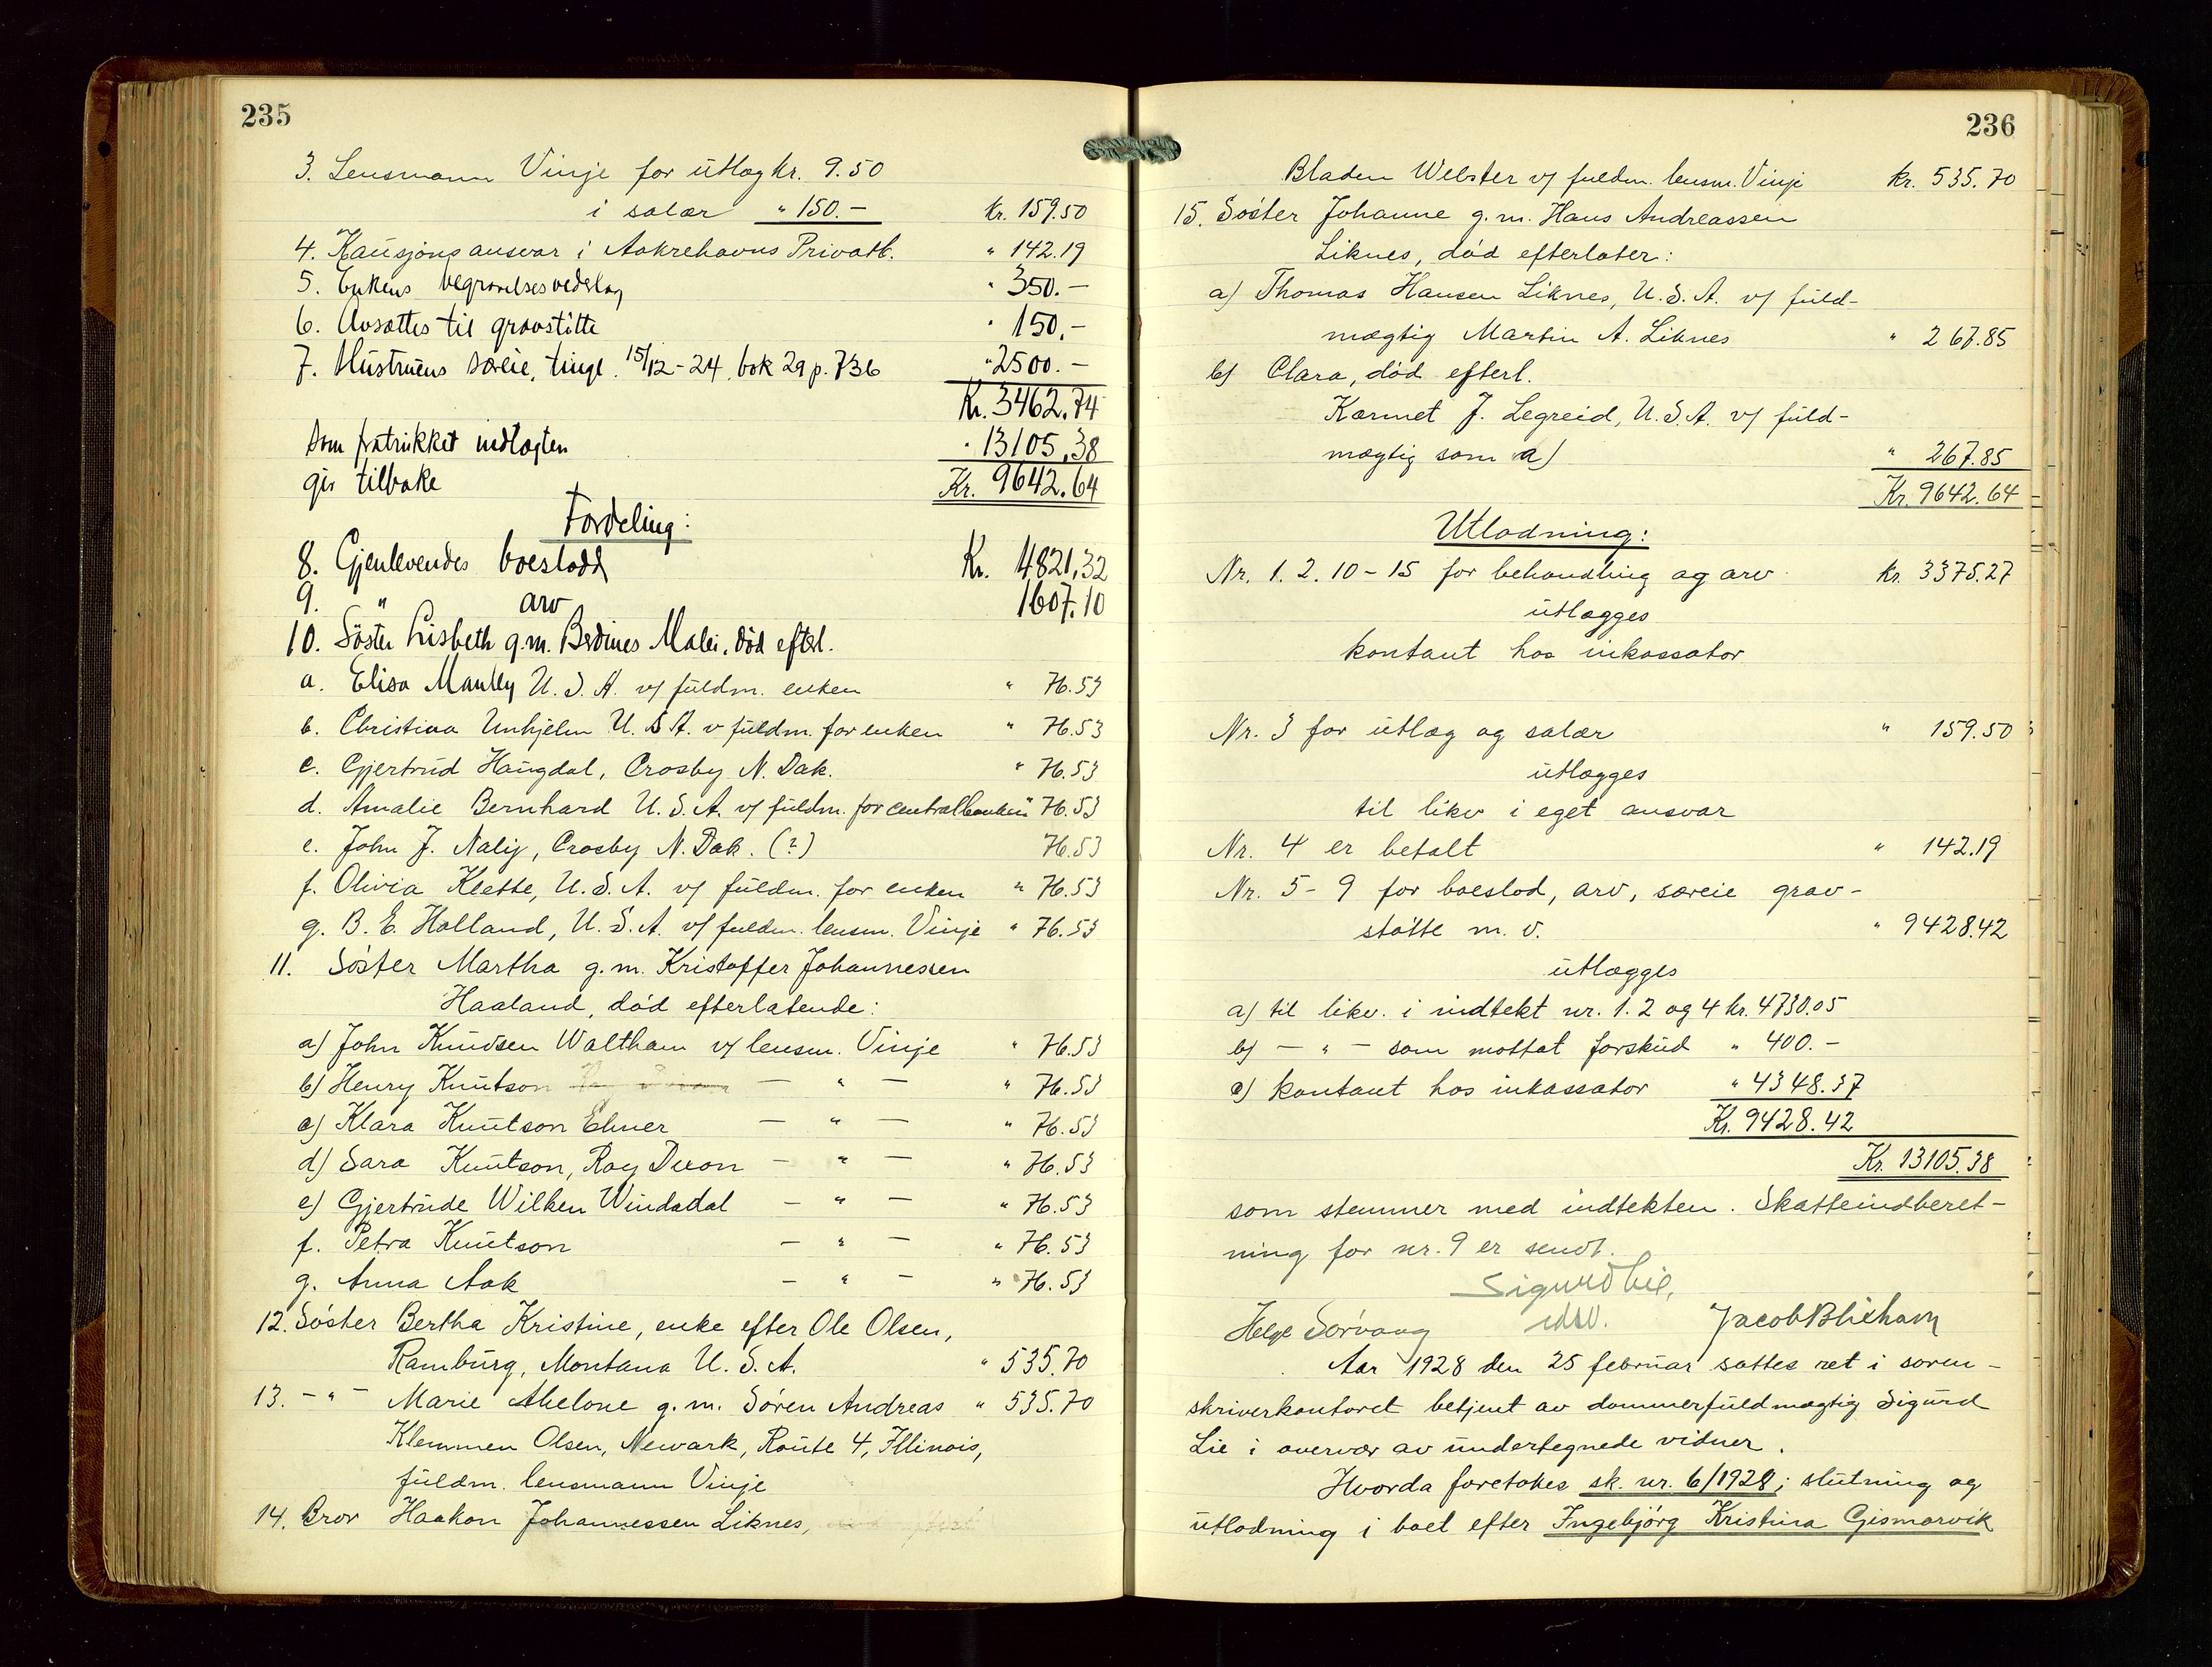 235
3. Lensmann Vinje for utlæg kr. 9.50
i salær " 150.- kr. 159.50
4. Kausjonsansvar i Aakrehavns Privatb. " 142.19
5. Enkens begravelsesvederlag " 350.-
6. Avsættes til gravstøtte " 150.-
7. Hustruens særeie, tingl. 15/12-24, bok 29 p. 736 " 2500.-
Kr. 3462.74
som fratrukket indtægten " 13105,38
gir tilbake Kr. 9642.64
Fordeling:
8. Gjenlevendes boeslodd Kr. 4821,32
9. " arv 1607.10
10. Søster Lisbeth g.m. Berdines Malei, død efterl.
a. Elisa Manley U.S.A. v/ fuldm. enken " 76.53
b. Christina Unhjelm U.S.A. v fuldm. for enken " 76.53
c. Gjertrud Haugdal, Crosby N. Dak. " 76.53
d. Amalie Bernhard U.S.A. v/ fuldm. for centralbanken " 76.53
e. John J. Nalij, Crosby N. Dak. (?) 76.53
f. Olivia Klette, U.S.A. v/ fuldm. for enken " 76.53
g. B. E. Holland, U.S.A. v/ fuldm. lensm. Vinje " 76.53
11. Søster Martha g.m. Kristoffer Johannessen
Haaland, død efterlatende:
a) John Knudsen Waltham v/ lensm. Vinje " 76.53
b) Henry Knutson — " — " 76.53
c) Klara Knutson Ehner — " — " 76.53
d) Sara Knutson, Roy Dixon — " — " 76.53
e) Gjertrude Wilken Windsdal — " — " 76.53
f. Petra Knutson — " — " 76.53
g. Anna Aak — " — " 76.53
12. Søster Bertha Kristine, enke efter Ole Olsen,
Ramburg, Montana U.S.A. " 535.70
13. - " - Marie Abelone g.m. Søren Andreas " 535.70
Klemmen Olsen, Newark, Route 4, Illinois,
fuldm. lensmann Vinje
14. Bror Haakon Johannessen Liknes,
236
Bladen Webster v/ fuldm. lensm. Vinje kr. 535.70
15. Søster Johanne g.m. Hans Andreassen
Liknes, død efterlater:
a) Thomas Hansen Liknes, U.S.A. v/ fuld-
mægtig Martin A. Liknes " 267.85
b) Clara, død efterl.
Karmet J. Legreid, U.S.A. v/ fuld-
mægtig som a) " 267.85
Kr. 9642.64
Utlodning:
Nr. 1. 2. 10-15 for behandling og arv kr. 3375.27
utlægges
kontant hos inkassator
Nr. 3 for utlæg og salær " 159.50
utlægges
til likv i eget ansvar
Nr. 4 er betalt " 142.19
Nr. 5-9 for boeslod, arv, særeie grav-
støtte m.v. " 9428.42
utlægges
a) til likv. i indtekt nr. 1. 2 og 4 kr. 4730.05
b) - " - som mottat forskud " 400.-
c) kontant hos inkassator " 4348.37
Kr. 9428.42
Kr. 13105.38
som stemmer med indtekten. Skatteindberet-
ning for nr. 9 er sendt.
Sigurd Lie,
edsv.
Helge Sørvaag Jacob Blixhavn
Aar 1928 den 25 februar sattes ret i soren-
skriverkontoret betjent av dommerfuldmægtig Sigurd
Lie i overvær av undertegnede vidner.
Hvorda foretokes sk. nr. 6/1928; slutning og
utlodning i boet efter Ingebjørg Kristina Gismarvik